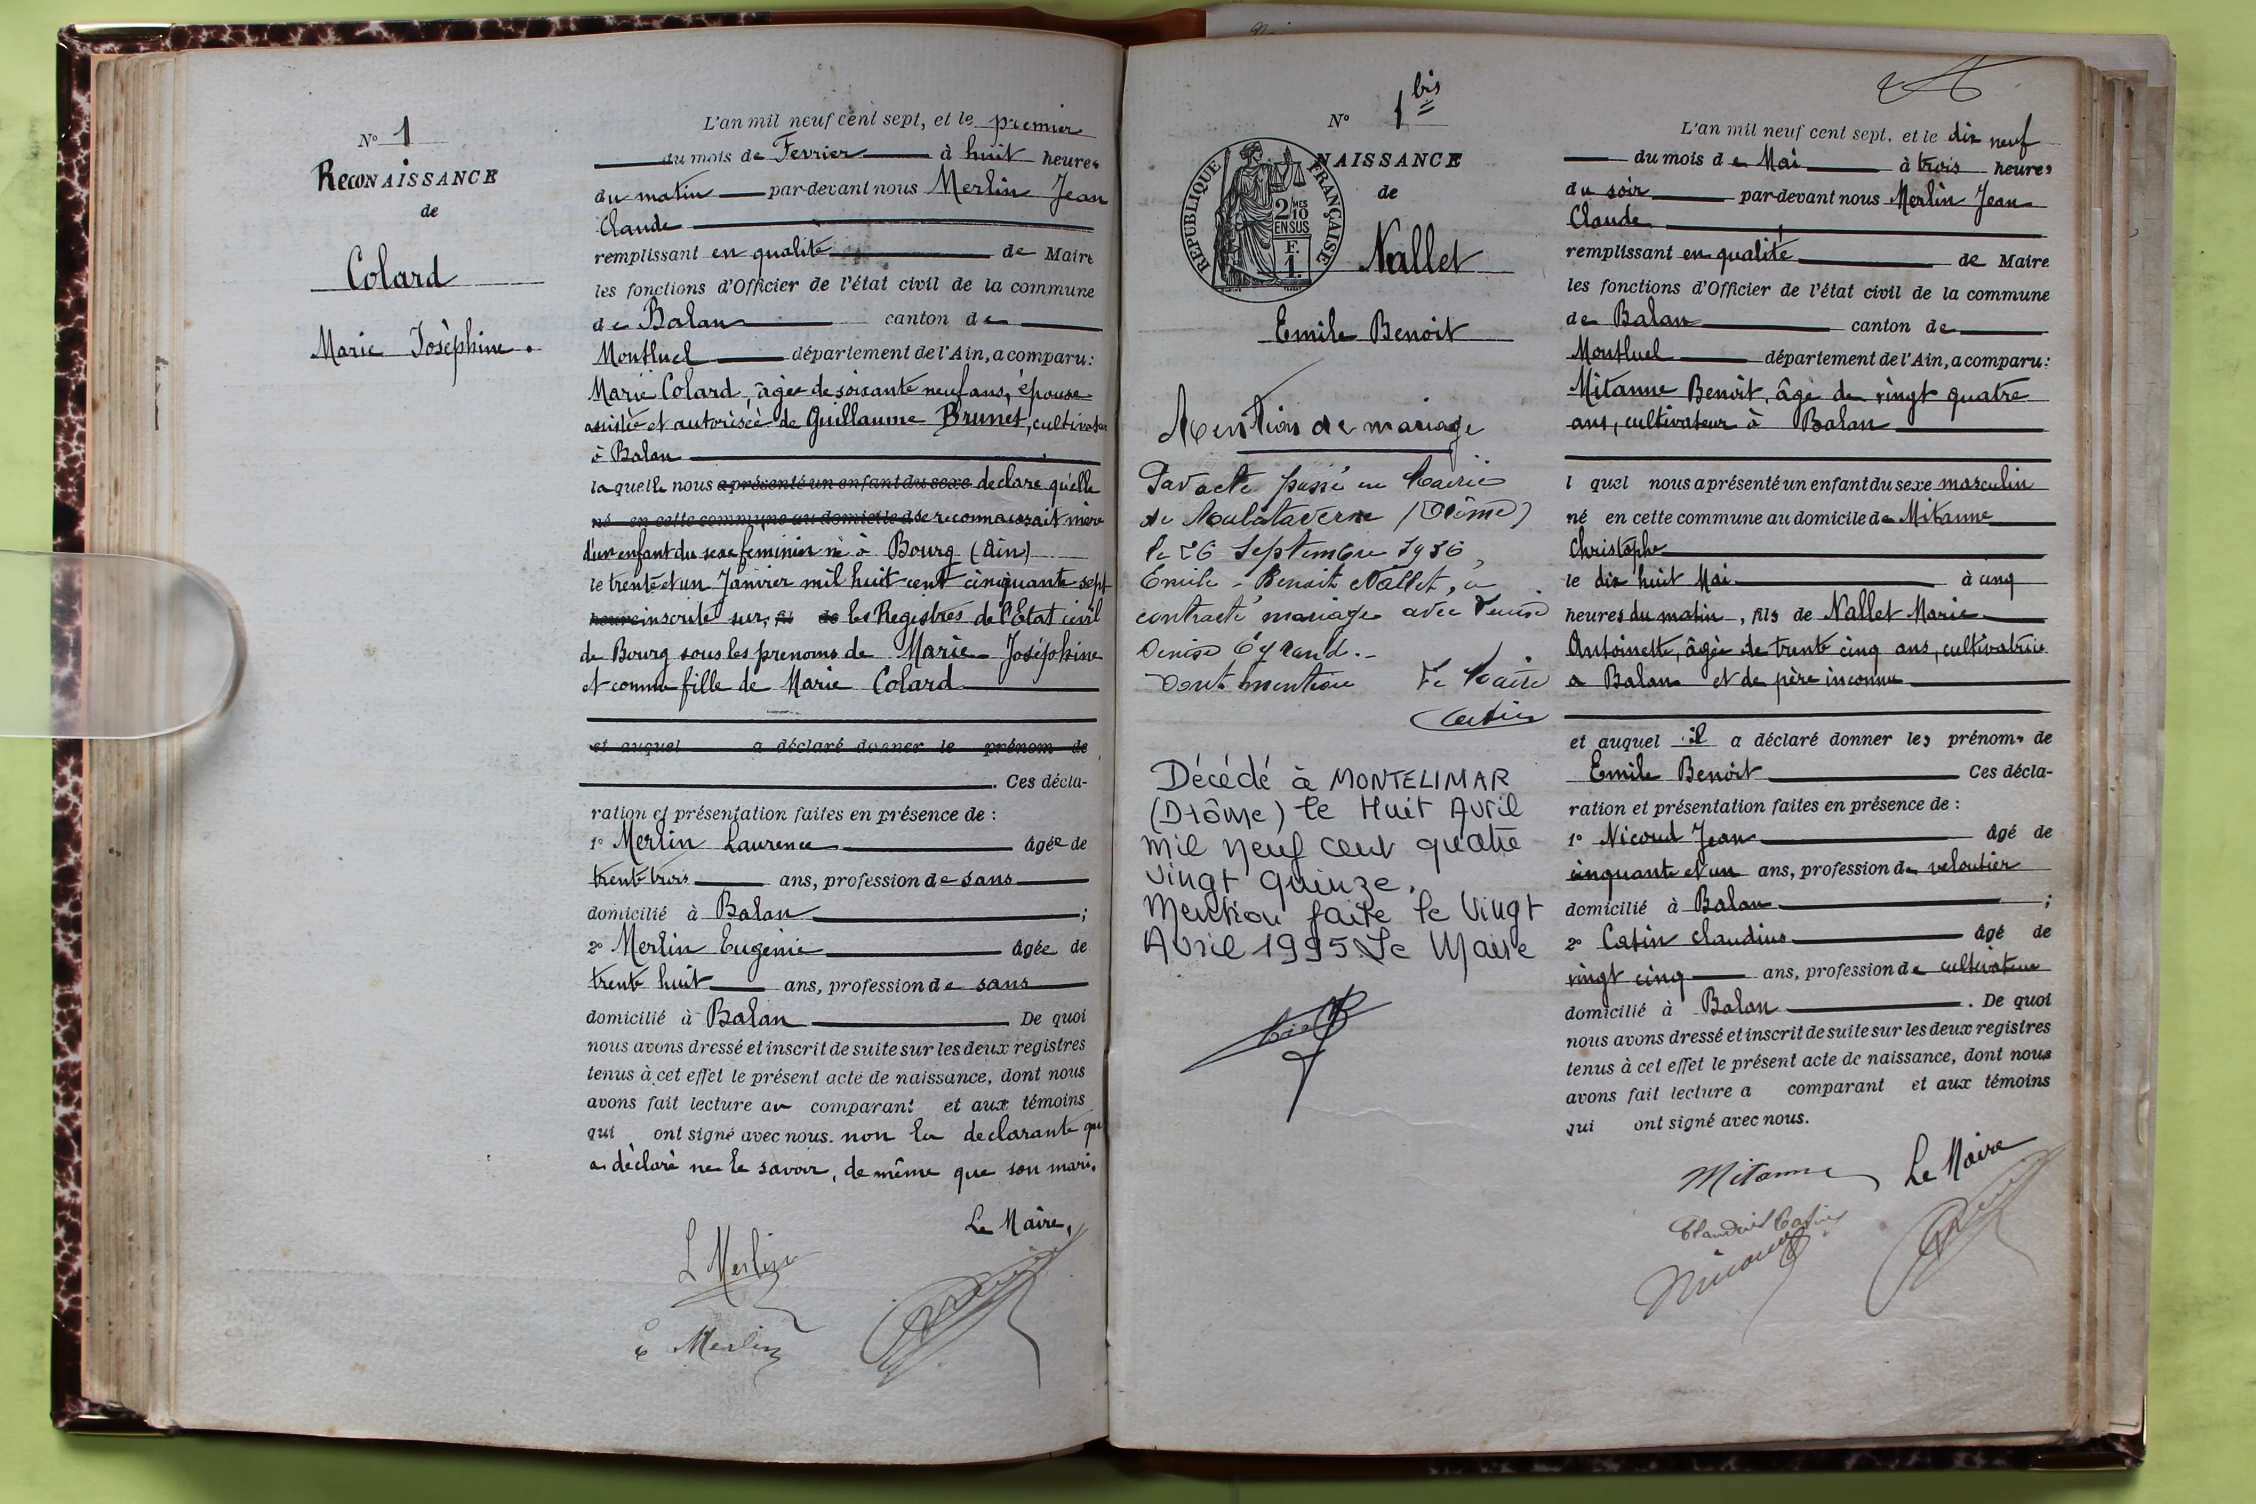 N° 1
RECONAISSANCE
de
Colard
Marie Josèphine.
L'an mil neuf cent sept, et le premier
du mois de Fevrier à huit heures
du matin par-devant nous Merlin Jean
Claude
remplissant en qualité de Maire
les fonctions d'Officier de l'état civil de la commune
de Balan canton de
Montluel département de l'Ain, a comparu:
Marie Colard, âgée de soixante neuf ans, épouse
assistée et autorisée de Guillaume Brunet, cultivateur
à Balan
laquelle nous a présenté un enfant du sexe declare qu'elle
né en cette commune au domicile d se reconnaissait mère
d'un enfant du sexe feminin né à Bourg (Ain)
le trente et un Janvier mil huit cent cinquante sept
heures inscrite sur, fil de les Registres de l'Etat civil
de Bourg sous les prenoms de Marie Joséphine
et comme fille de Marie Colard
et auquel a déclaré donner le prénom de
. Ces décla-
ration et présentation faites en présence de :
1° Merlin Laurence âgée de
trente trois ans, profession de sans
domicilié à Balan ;
2° Merlin Eugénie âgée de
trente huit ans, profession de sans
domicilié à Balan De quoi
nous avons dressé et inscrit de suite sur les deux registres
tenus à cet effet le présent acte de naissance, dont nous
avons fait lecture au comparant et aux témoins
qui ont signé avec nous. non la declarante qui
a déclaré ne le savoir, de même que son mari.
Le Maire,
L Merlin
E Merlin
N° 1 bis
NAISSANCE
de
RÉPUBLIQUE FRANÇAISE
2/10 MES
EN SUS
F.
1.
Nallet
Emile Benoit
Mention de mariage
Par acte passé en Mairie
de (Drôme)
le 26 Septembre 1936,
Emile-Benoit Nallet, a
contracté mariage avec
Denise Eyraud.-
Dont mention Le Maire
Décédé à MONTELIMAR
(Drôme) le Huit Avril
mil neuf cent quatre
vingt quinze.
Mention faite le Vingt
Avril 1995. Le Maire
L'an mil neuf cent sept, et le dix neuf
du mois de Mai à trois heures
du soir par-devant nous Merlin Jean
Claude
remplissant en qualité de Maire
les fonctions d'Officier de l'état civil de la commune
de Balan canton de
Montluel département de l'Ain, a comparu:
Mitanne Benoit, âgé de vingt quatre
ans, cultivateur à Balan
l quel nous a présenté un enfant du sexe masculin
né en cette commune au domicile de Mitanne
Christophe
le dix huit Mai à cinq
heures du matin, fils de Nallet Marie
Antoinette, âgée de trente cinq ans, cultivatrice
a Balan et de père inconnu
et auquel il a déclaré donner les prénoms de
Emile Benoit Ces décla-
ration et présentation faites en présence de :
1° Nicoud Jean âgé de
cinquante et un ans, profession de veloutier
domicilié à Balan ;
2° Catin Claudius âgé de
vingt cinq ans, profession de cultivateur
domicilié à Balan . De quoi
nous avons dressé et inscrit de suite sur les deux registres
tenus à cet effet le présent acte de naissance, dont nous
avons fait lecture a comparant et aux témoins
qui ont signé avec nous.
Mitanne Le Maire
Claudius Catin
Nicoud